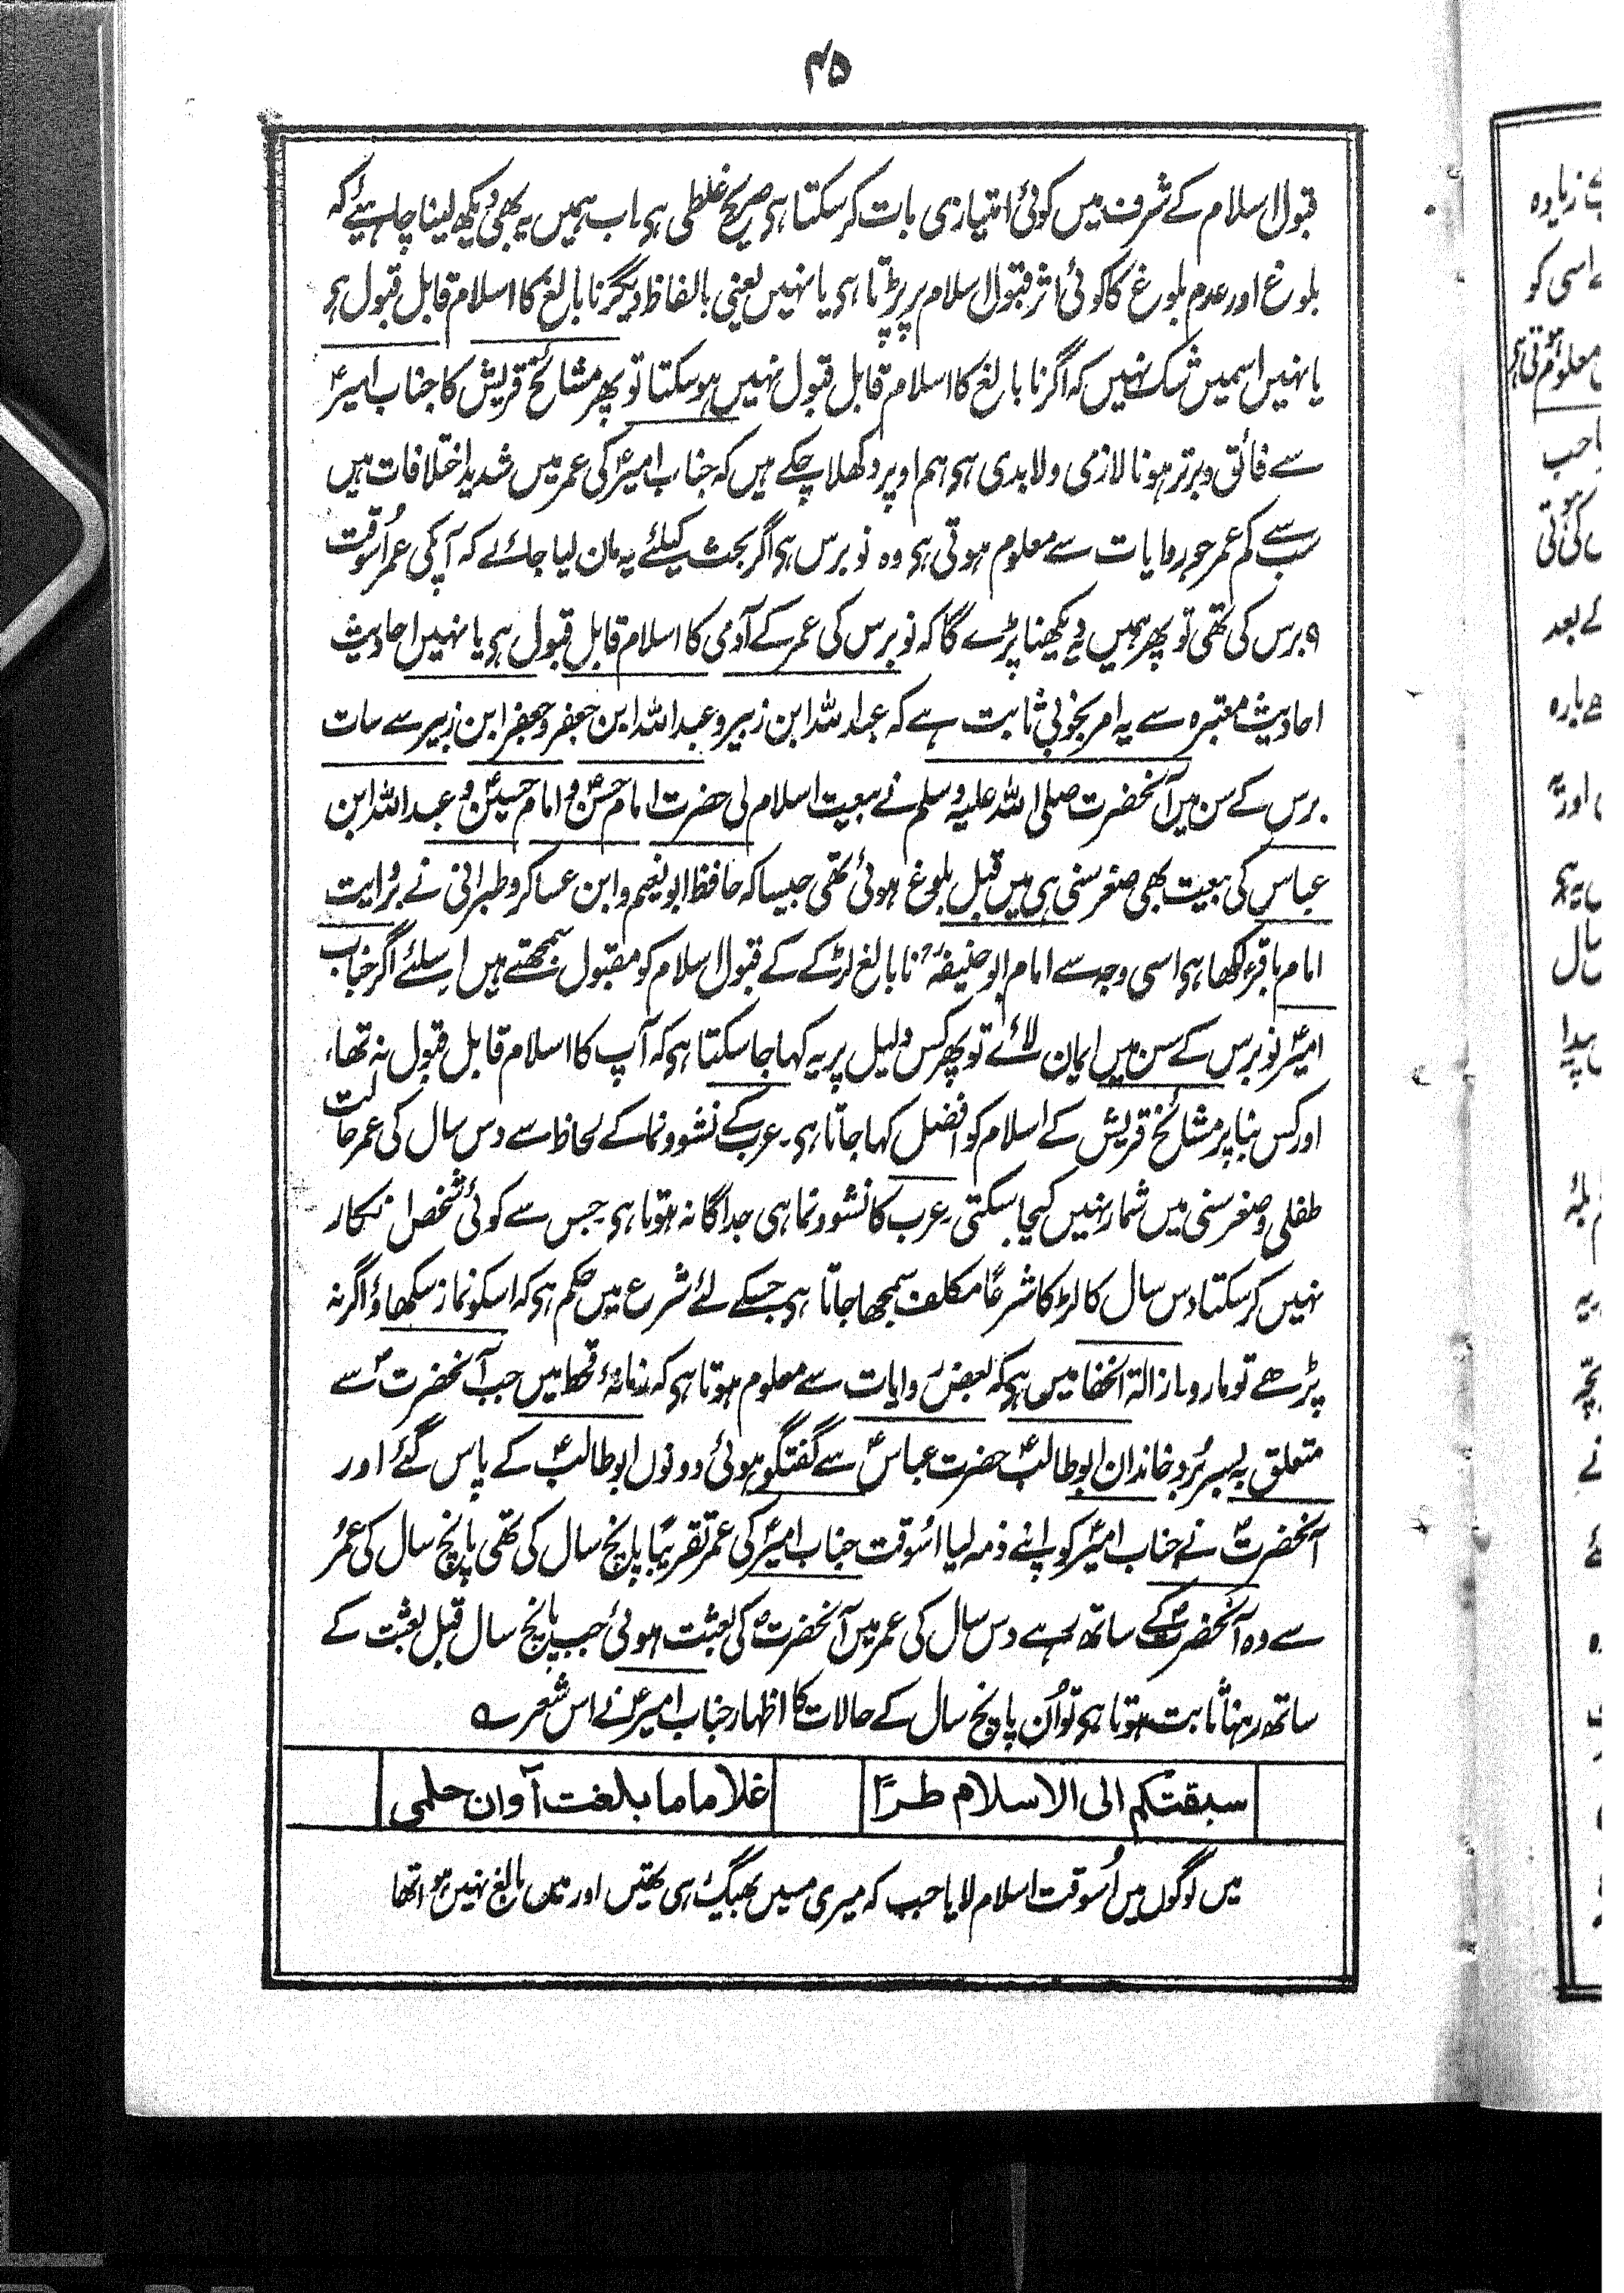 ۴۵
قبول اسلام کے شرف میں کوئی امتیازی بات کرسکتا ہی صریح غلطی ہی۔ اب ہمیں یہ بھی دیکھ لینا چاہیئے کہ
بلوغ اور عدم بلوغ کا کوئی اثر قبول اسلام پر پڑتا ہی یا نہیں یعنی بالفاظ دیگر نابالغ کا اسلام قابل قبول ہی
یا نہیں اسمیں شک نہیں کہ اگر نابالغ کا اسلام قابل قبول نہیں ہوسکتا تو پھر مشائخ قریش کا جناب امیرؑ
سے فائق و برتر ہونا لازمی ولابدی ہی ہم اوپر دکھلا چکے ہیں کہ جناب امیرؑ کی عمر میں شدید اختلافات ہیں
سب سے کم عمر جو روایات سے معلوم ہوتی ہی وہ نو برس ہی اگر بحث کیلئے یہ مان لیا جائے کہ آپکی عمر اُسوقت
۹ برس کی تھی تو پھر ہمیں یہ دیکھنا پڑے گا کہ نو برس کی عمر کے آدمی کا اسلام قابل قبول ہی یا نہیں احادیث
احادیث معتبرہ سے یہ امر بخوبی ثابت ہے کہ عبداللہ ابن زبیر و عبداللہ ابن جعفر و جعفر ابن زبیر سے سات
برس کے سن میں آنحضرت صلی اللہ علیہ وسلم نے بیعت اسلام لی حضرت امام حسنؑ و امام حسینؑ و عبداللہ ابن
عباس کی بیعت بھی صغر سنی ہی میں قبل بلوغ ہوئی تھی جیسا کہ حافظ ابو نعیم و ابن عساکر و طبرانی نے بروایت
امام باقرؑ لکھا ہی اسی وجہ سے امام ابو حنیفہؒ نابالغ لڑکے کے قبول اسلام کو مقبول سمجھتے ہیں اسلئے اگر جناب
امیرؑ نو برس کے سن میں ایمان لائے تو پھر کس دلیل پر یہ کہا جاسکتا ہی کہ آپ کا اسلام قابل قبول نہ تھا،
اور کس بنا پر مشائخ قریش کے اسلام کو افضل کہا جاتا ہی۔ عرب کے نشوونما کے لحاظ سے دس سال کی عمر حالت
طفلی و صغر سنی میں شمار نہیں کیجا سکتی۔ عرب کا نشوونما ہی جداگانہ ہوتا ہی جس سے کوئی شخص انکار
نہیں کرسکتا دس سال کا لڑکا شرعاً مکلف سمجھا جاتا ہی جسکے لئے شرع میں حکم ہی کہ اسکو نماز سکھاؤ اگر نہ
پڑھے تو مارو۔ ازالۃ الخفا میں ہی کہ بعض روایات سے معلوم ہوتا ہی کہ زمانۂ قحط میں جب آنحضرتؐ سے
متعلق بہ سپرد خاندان ابوطالبؑ حضرت عباسؑ سے گفتگو ہوئی دونوں ابوطالبؑ کے پاس گئے اور
آنحضرتؐ نے جناب امیرؑ کو اپنے ذمہ لیا اسُوقت جناب امیرؑ کی عمر تقریباً پانچ سال کی تھی پانچ سال کی عمر
سے وہ آنحضرتؐ کے ساتھ رہے دس سال کی عمر میں آنحضرتؐ کی بعثت ہوئی جب پانچ سال قبل بعثت کے
ساتھ رہنا ثابت ہوتا ہی تو اُن پانچ سال کے حالات کا اظہار جناب امیرؑ نے اس شعر سے
سبقتکم الی الاسلام طرًا غلاما ما بلغت آوان حلمی
میں لوگوں میں اُسوقت اسلام لایا جب کہ میری مسیں بھیگ ہی تھیں اور میں بالغ نہیں ہوا تھا